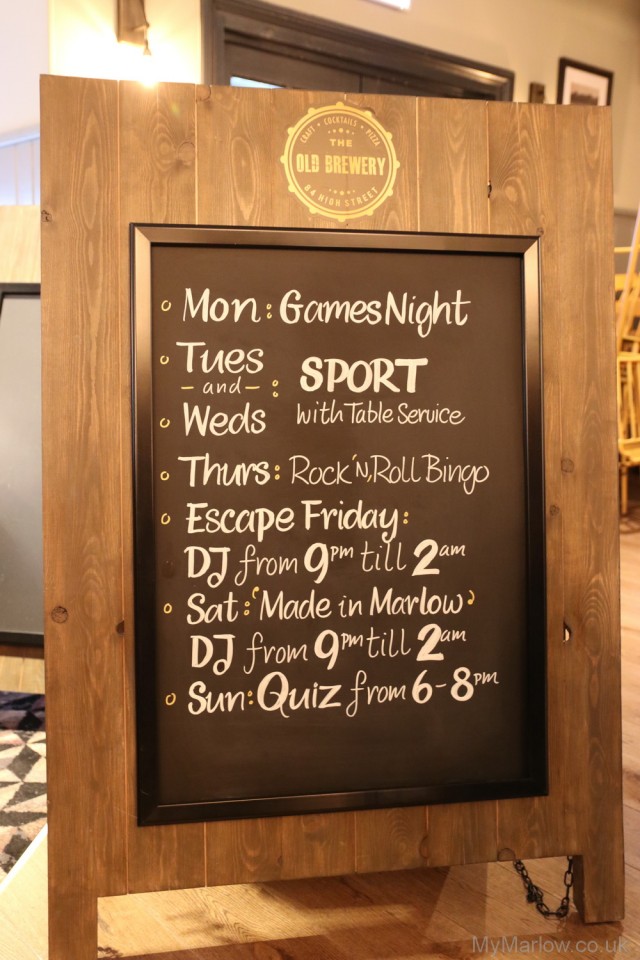 CRAFT • COCKTAILS • PIZZA
THE
OLD BREWERY
84 HIGH STREET
Mon: Games Night
Tues
- and - : SPORT
Weds with Table Service
Thurs: Rock 'N, Roll Bingo
Escape Friday:
DJ from 9pm till 2am
Sat: 'Made in Marlow'
DJ from 9pm till 2am
Sun: Quiz from 6-8pm
MyMarlow.co.uk